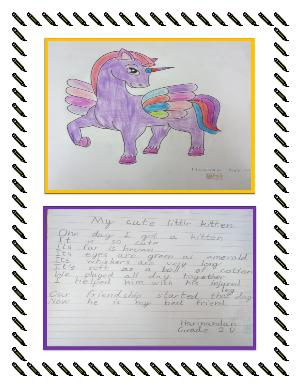 My cute little kitten
One day I got a kitten
It is so cute
Its fur is brown
Its eyes are green as emerald
Its whiskers are very long
It's soft as a ball of cotton
We played all day together
I helped him with his injured
leg
Our friendship started that day
Now he is my best friend
Harinandan
Grade 2 D